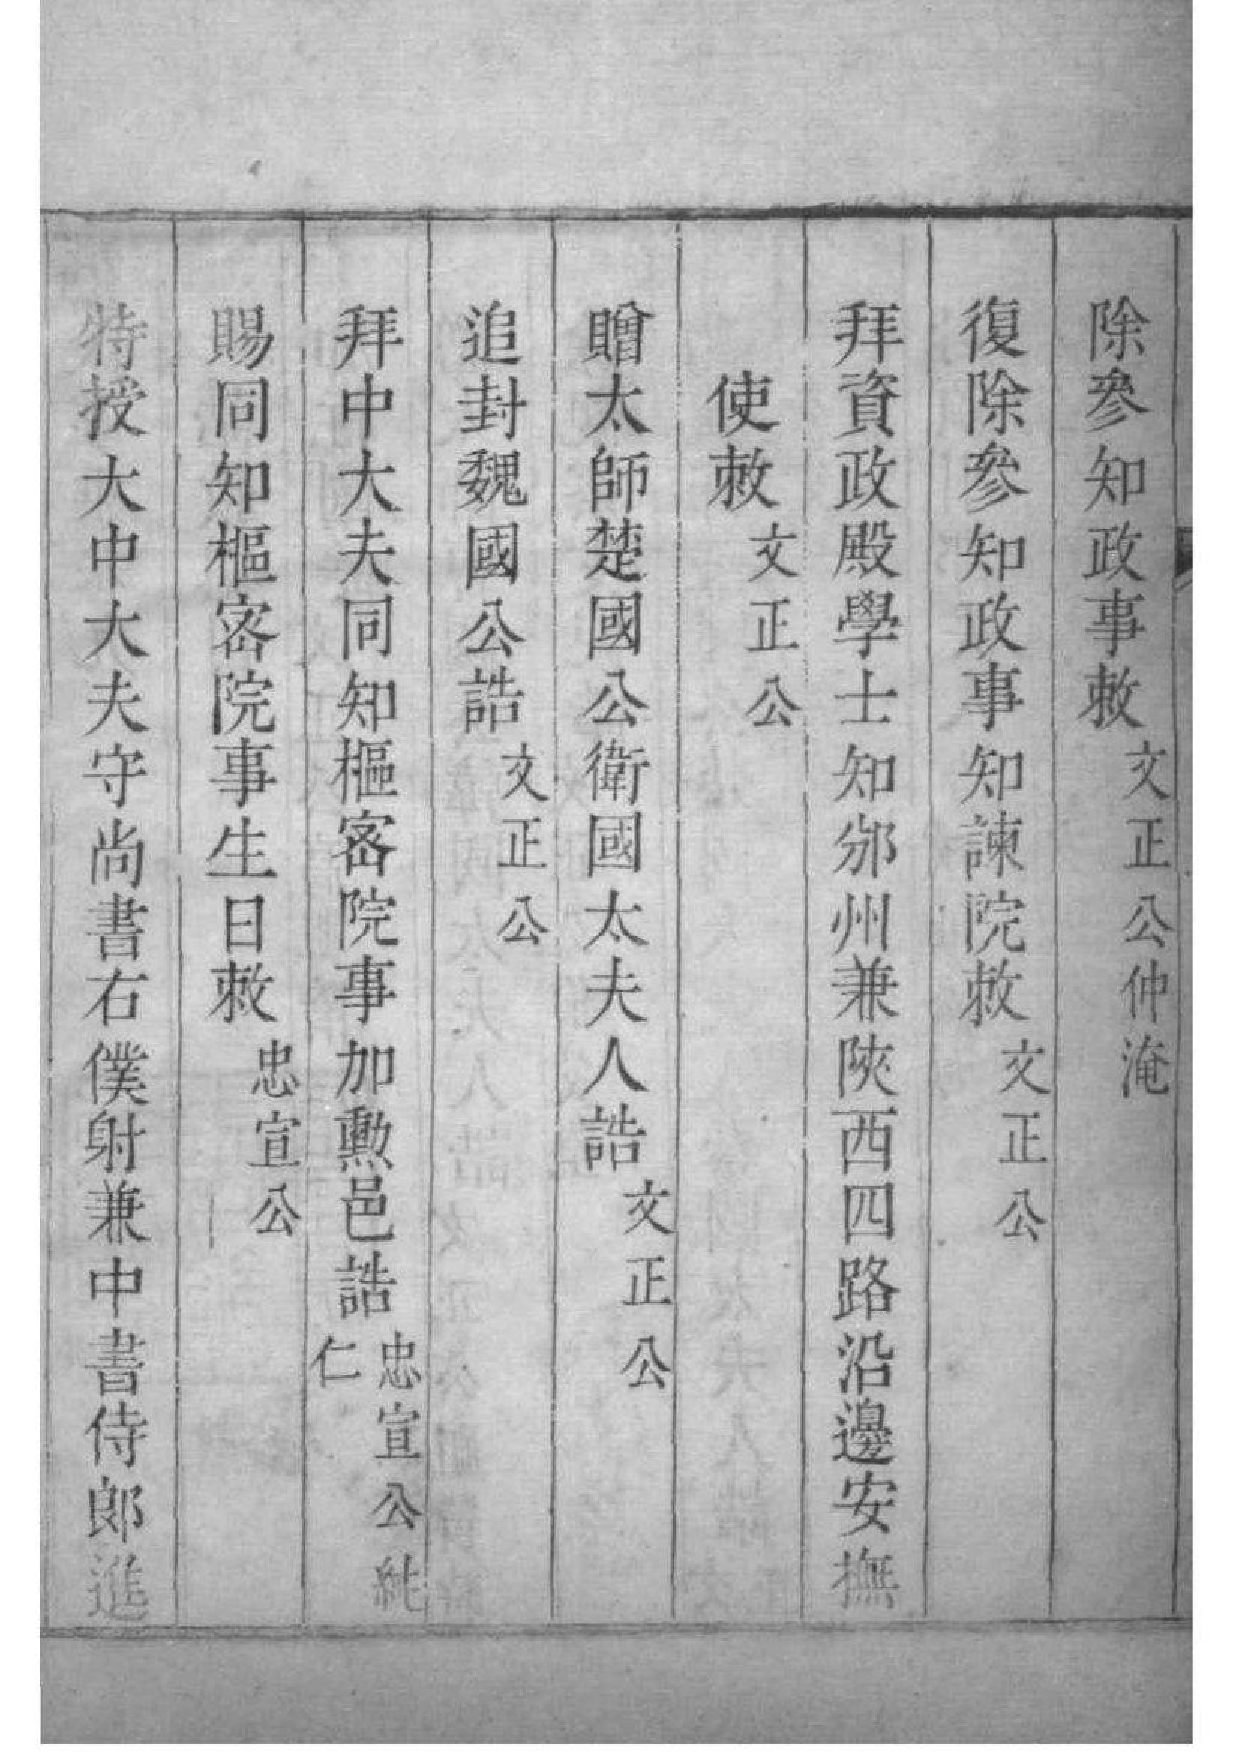 除參知政事敕文正公仲淹
復除參知政事知諫院敕文正公
拜資政殿學士知邠州兼陝西四路沿邊安撫
使敕文正公
贈太師楚國公衛國太夫人誥文正公
追封魏國公誥文正公
拜中大夫同知樞密院事加勲邑誥忠宣公純仁
賜同知樞密院事生日敕忠宣公
特授大中大夫守尚書右僕射兼中書侍郎進